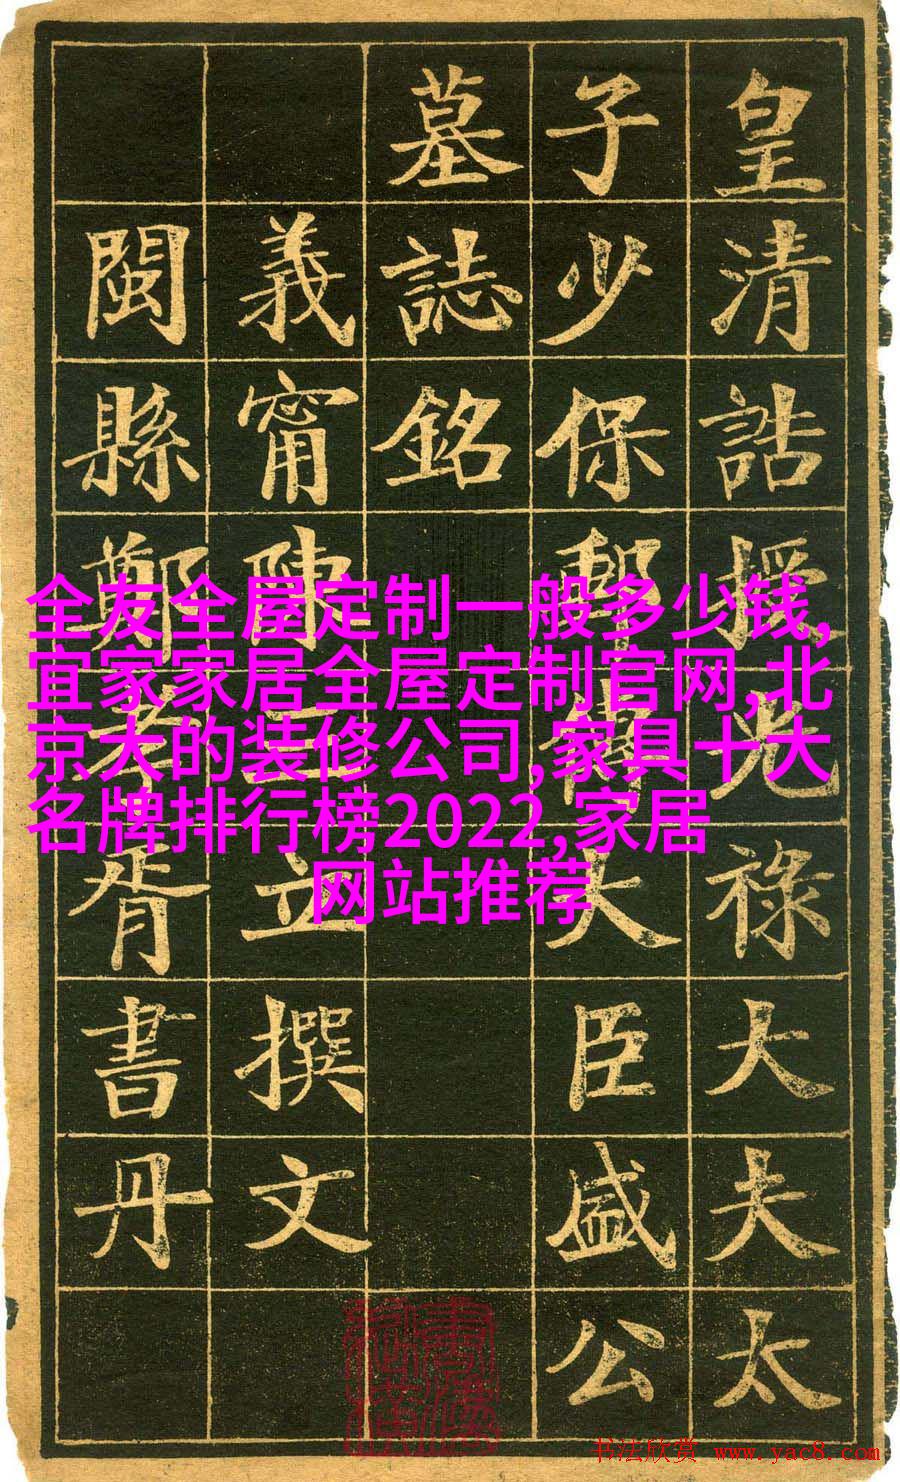 皇清誥授光祿大夫太
子少保郵傳大臣盛公
墓誌銘
義甯陳三立撰文
閩縣鄭孝胥書丹
全友全屋定制一般多少钱,
宜家家居全屋定制官网,北
京大的装修公司,家具十大
名牌排行榜2022,家居
网站推荐
书法欣赏 www.yac8.com